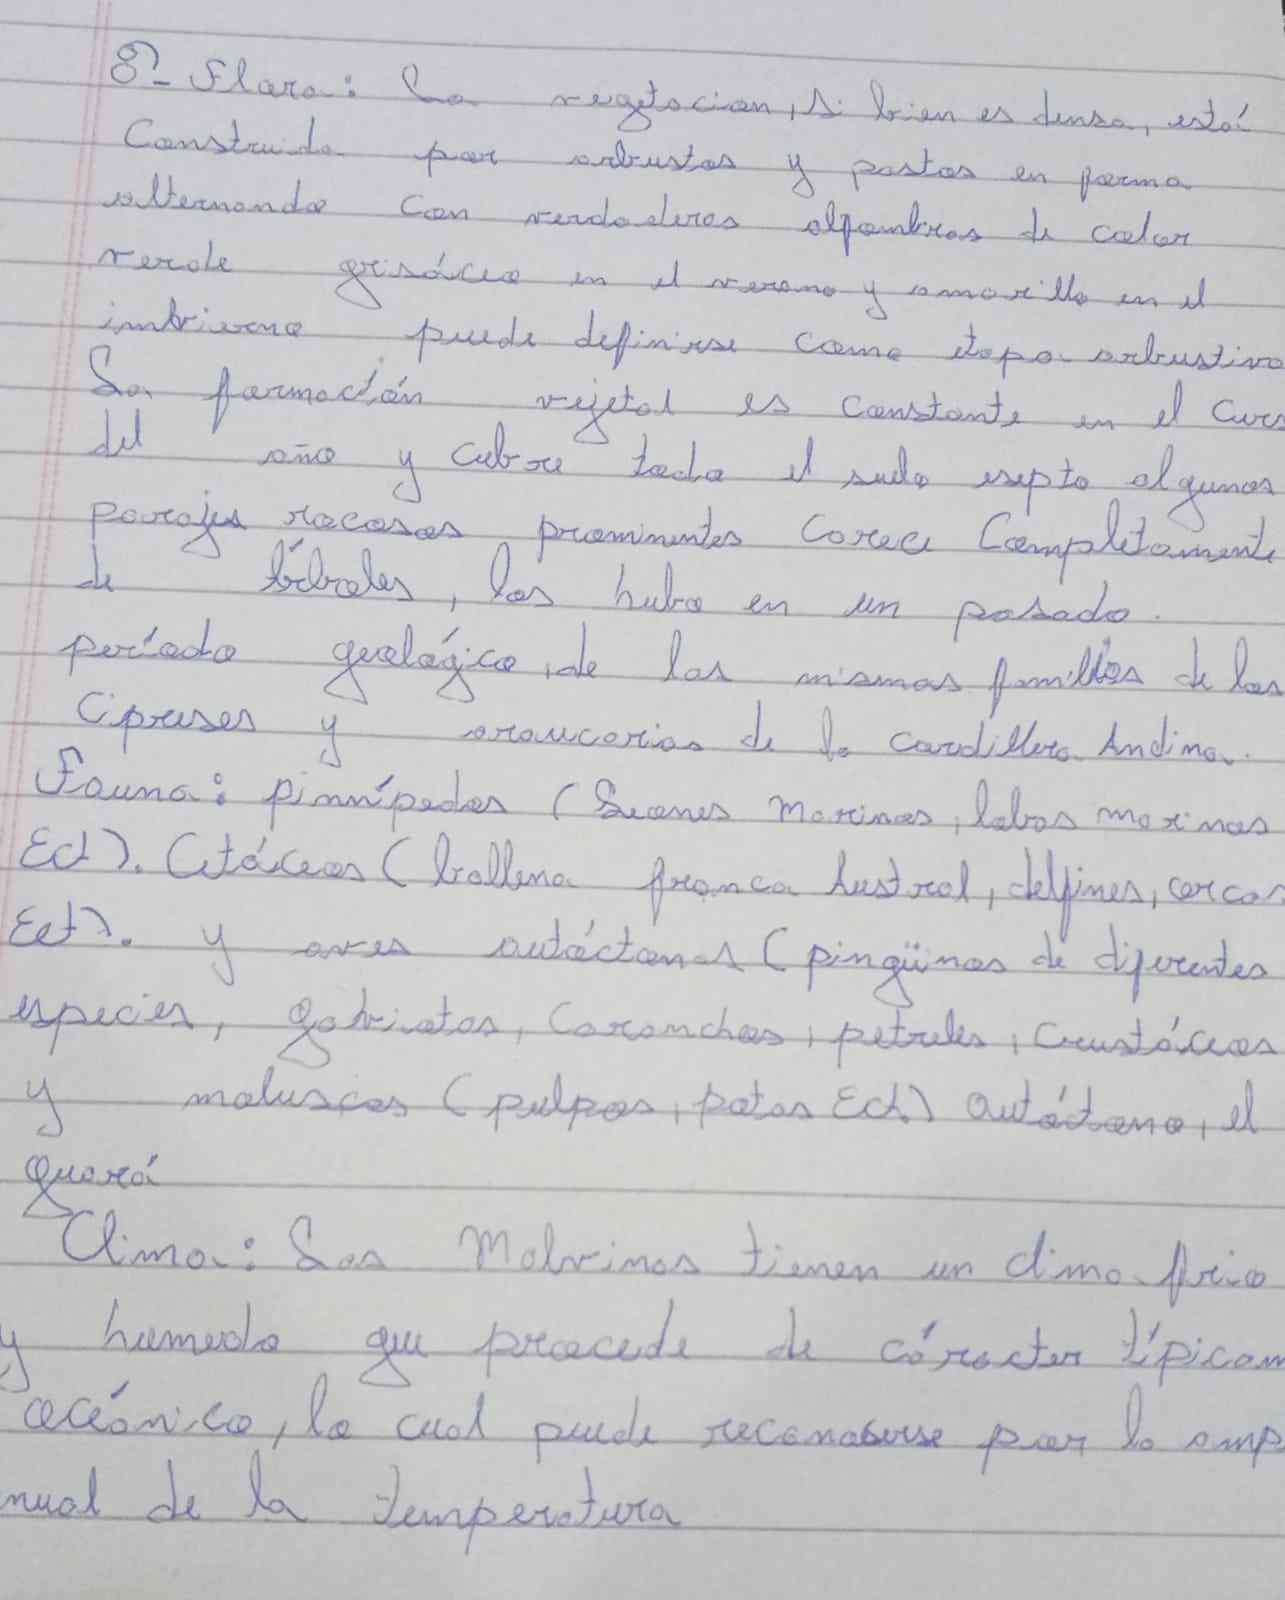 8)- Flora: La vegetacion, si bien es densa, está
Construida por arbustos y pastos en forma
alternando con verdaderas alfombras de color
verde grisáceo en el verano y amarillo en el
imbierno puede definirse como etapa arbustiva
La formación vejetal es constante en el curs
del año y cubre toda el suelo esepto algunas
parajes rocosas prominentes Carece Completamente
de los hubo en un pasado.
período geológico, de las mismas familias de los
Cipreses y araucarias de la Cordillera Andina.
Fauna: pinnípedos (Leones Marinos, lobos marinos
Ect). Cetáceos (ballena franca Austral, delfines, orcas
Ect). y aves autóctonas (pingüinos de diferentes
especies, gabiotas, Caranchos, petreles, Crustáceos
y moluscos (pulpos, potas Ect) autóctono, el
guará
Clima: Las Malvinas tienen un clima frio
y humedo que procede de cáracter típicam
oceánico, lo cual puede reconoserse por la amp
nual de la temperatura